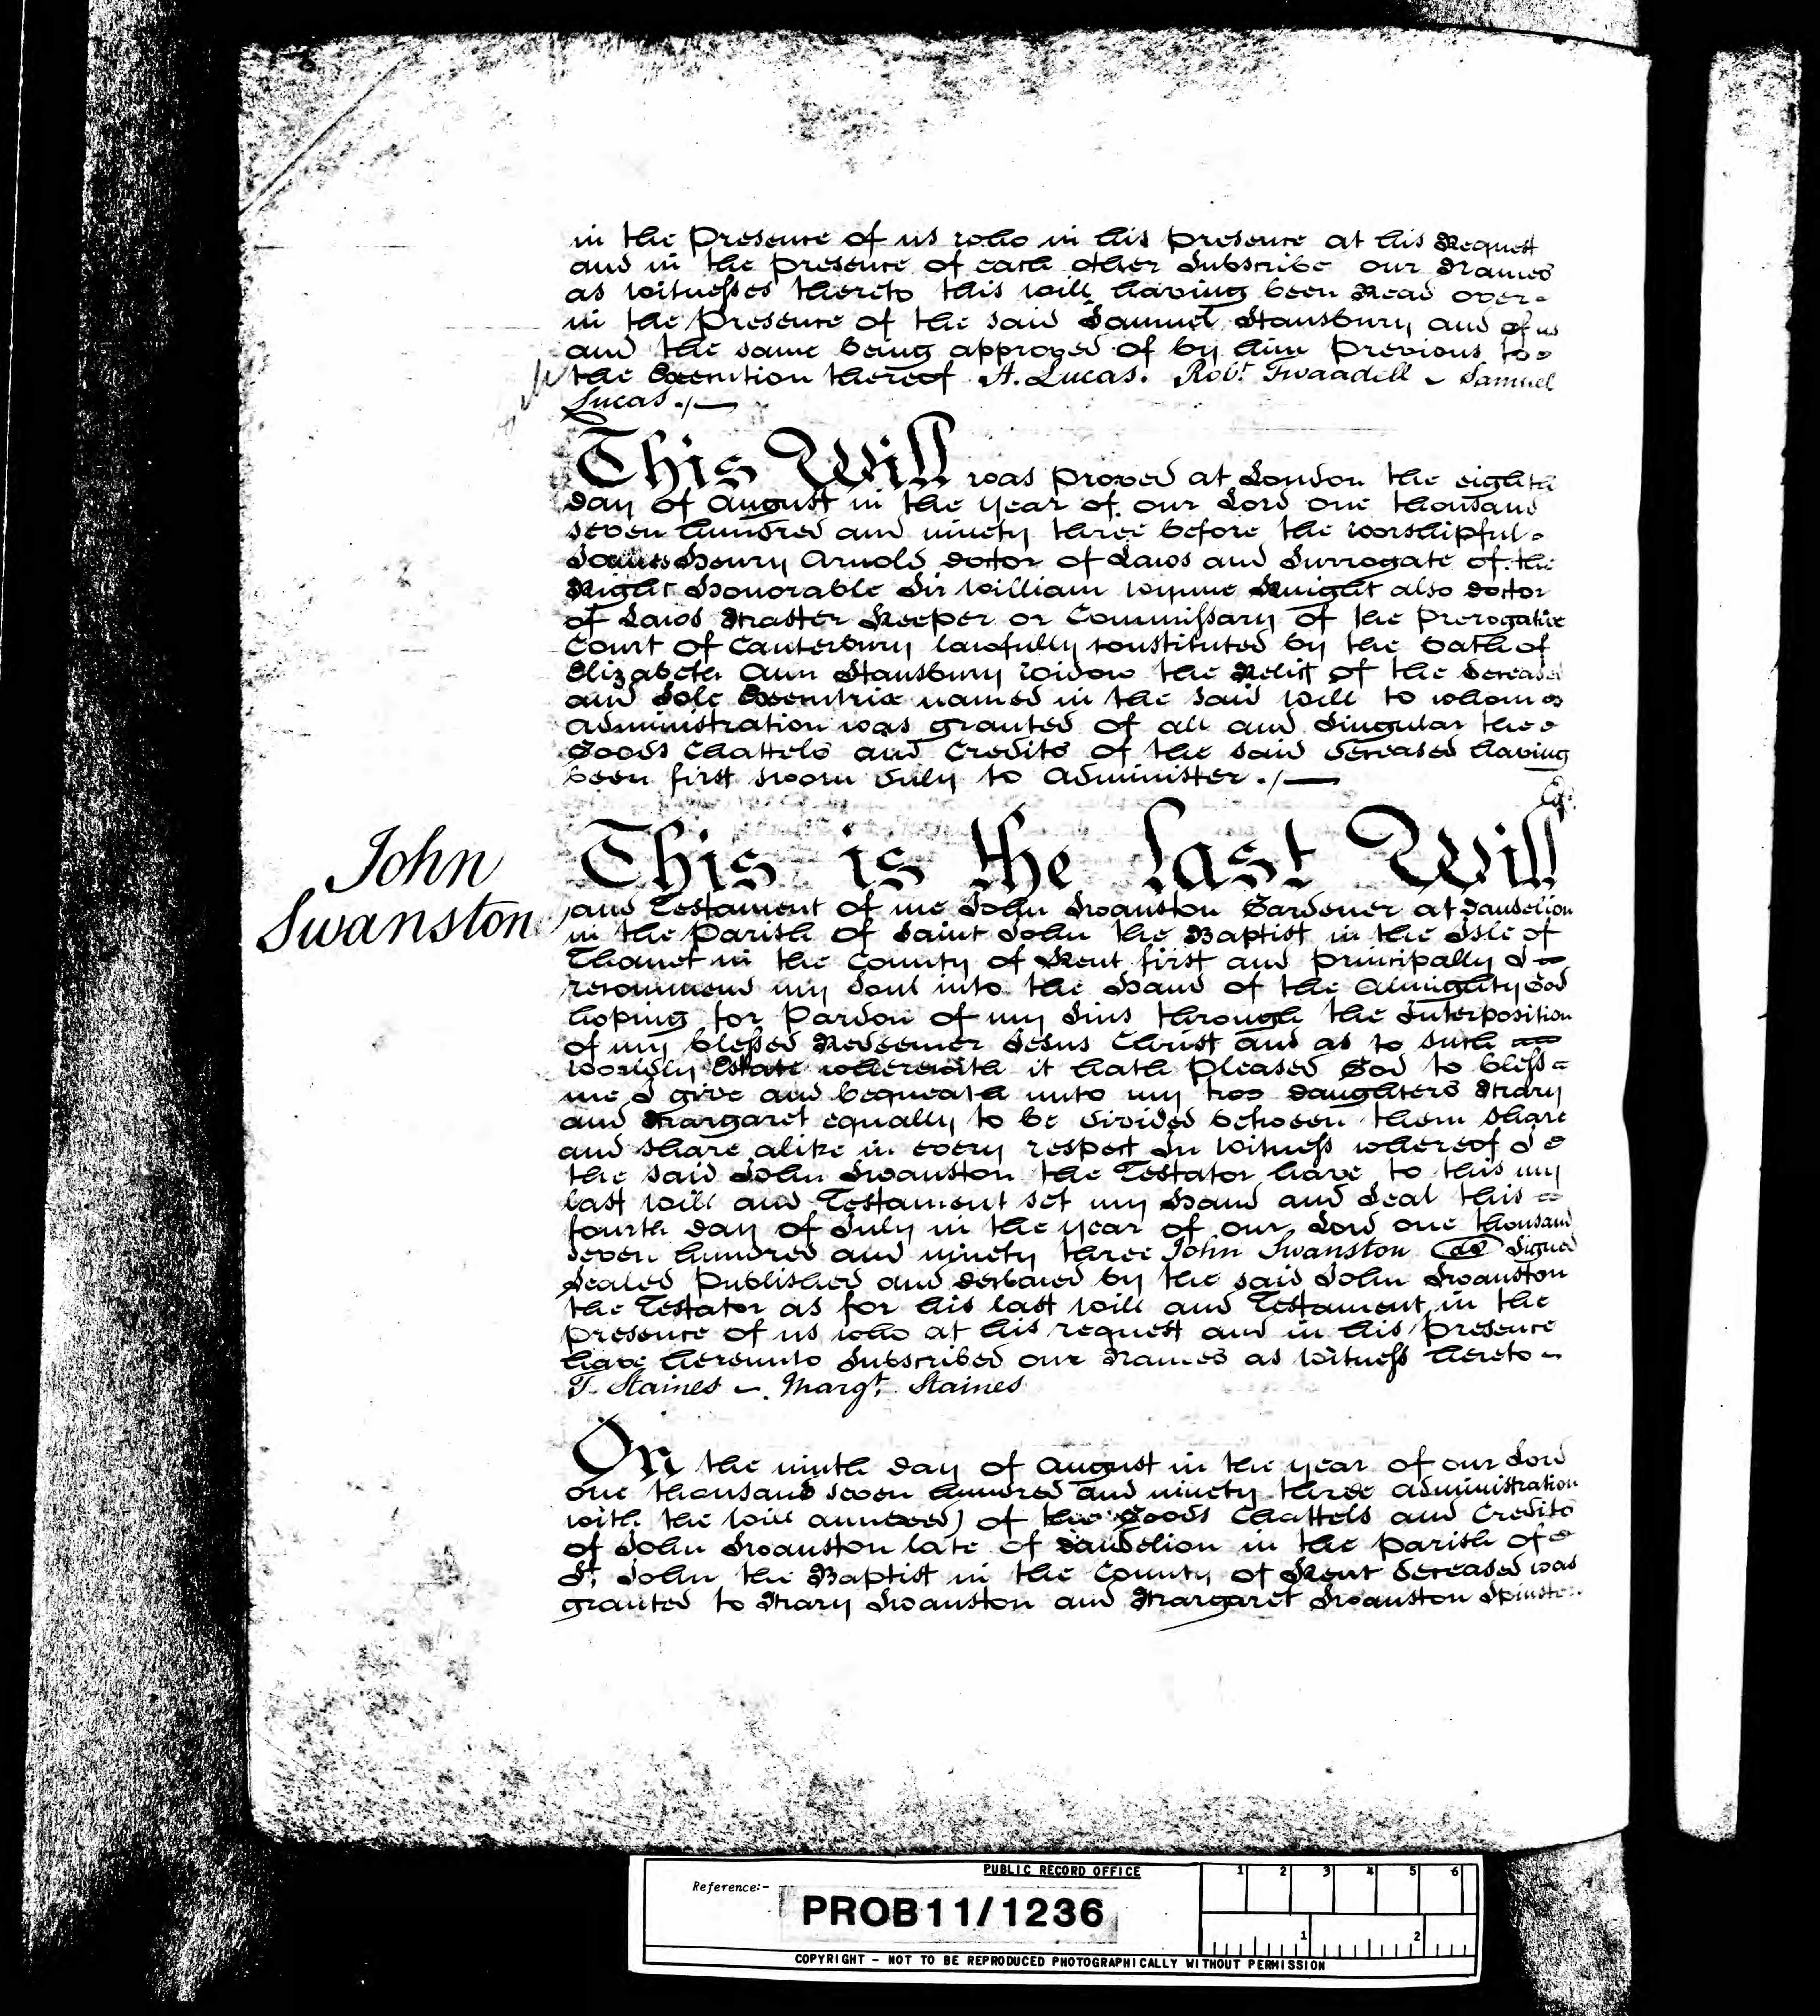 in the presence of us who in his presence at his Request
and in the presence of each other Subscribe our Names
as witnesses thereto this will having been Read over
in the presence of the said Samuel Stansbury and of us
and the same being approved of by him previous to
the Execution thereof A. Lucas. Robt. Twaddell ~ Samuel
Lucas ./—
This Will was proved at London the eighth
day of August in the year of our Lord one thousand
seven hundred and ninety three before the worshipful
James Henry Arnold Doctor of Laws and Surrogate of the
Right Honorable Sir William Wynne Knight also Doctor
of Laws Master Keeper or Commissary of the Prerogative
Court of Canterbury lawfully constituted by the Oath of
Elizabeth Ann Stansbury Widow the Relict of the deceased
and Sole Executrix named in the said Will to whom
administration was granted of all and Singular the
Goods Chattels and Credits of the said deceased having
been first sworn duly to administer ./—
John
Swanston
This is the last Will
and Testament of me John Swanston Gardener at Dandelion
in the Parish of Saint John the Baptist in the Isle of
Thanet in the County of Kent first and principally I
recommend my Soul into the Hand of the Almighty God
hoping for Pardon of my Sins through the Interposition
of my blessed Redeemer Jesus Christ and as to such
worldly Estate wherewith it hath pleased God to bless
me I give and bequeath unto my two Daughters Mary
and Margaret equally to be divided between them share
and share alike in every respect In Witness whereof I
the said John Swanston the Testator have to this my
last will and Testament set my Hand and Seal this
fourth Day of July in the year of our Lord one thousand
seven hundred and ninety three John Swanston LS Signed
Sealed published and declared by the said John Swanston
the Testator as for his last will and Testament in the
presence of us who at his request and in his presence
have hereunto Subscribed our Names as Witness hereto ~
T. Staines ~. Margt. Staines
On the ninth day of August in the year of our Lord
one thousand seven hundred and ninety three administration
with the Will annexed) of the Goods Chattels and Credits
of John Swanston late of Dandelion in the parish of
St. John the Baptist in the County of Kent deceased was
granted to Mary Swanston and Margaret Swanston
PUBLIC RECORD OFFICE
Reference:-
PROB 11/1236
1 2 3 4 5 6
1 2
COPYRIGHT - NOT TO BE REPRODUCED PHOTOGRAPHICALLY WITHOUT PERMISSION